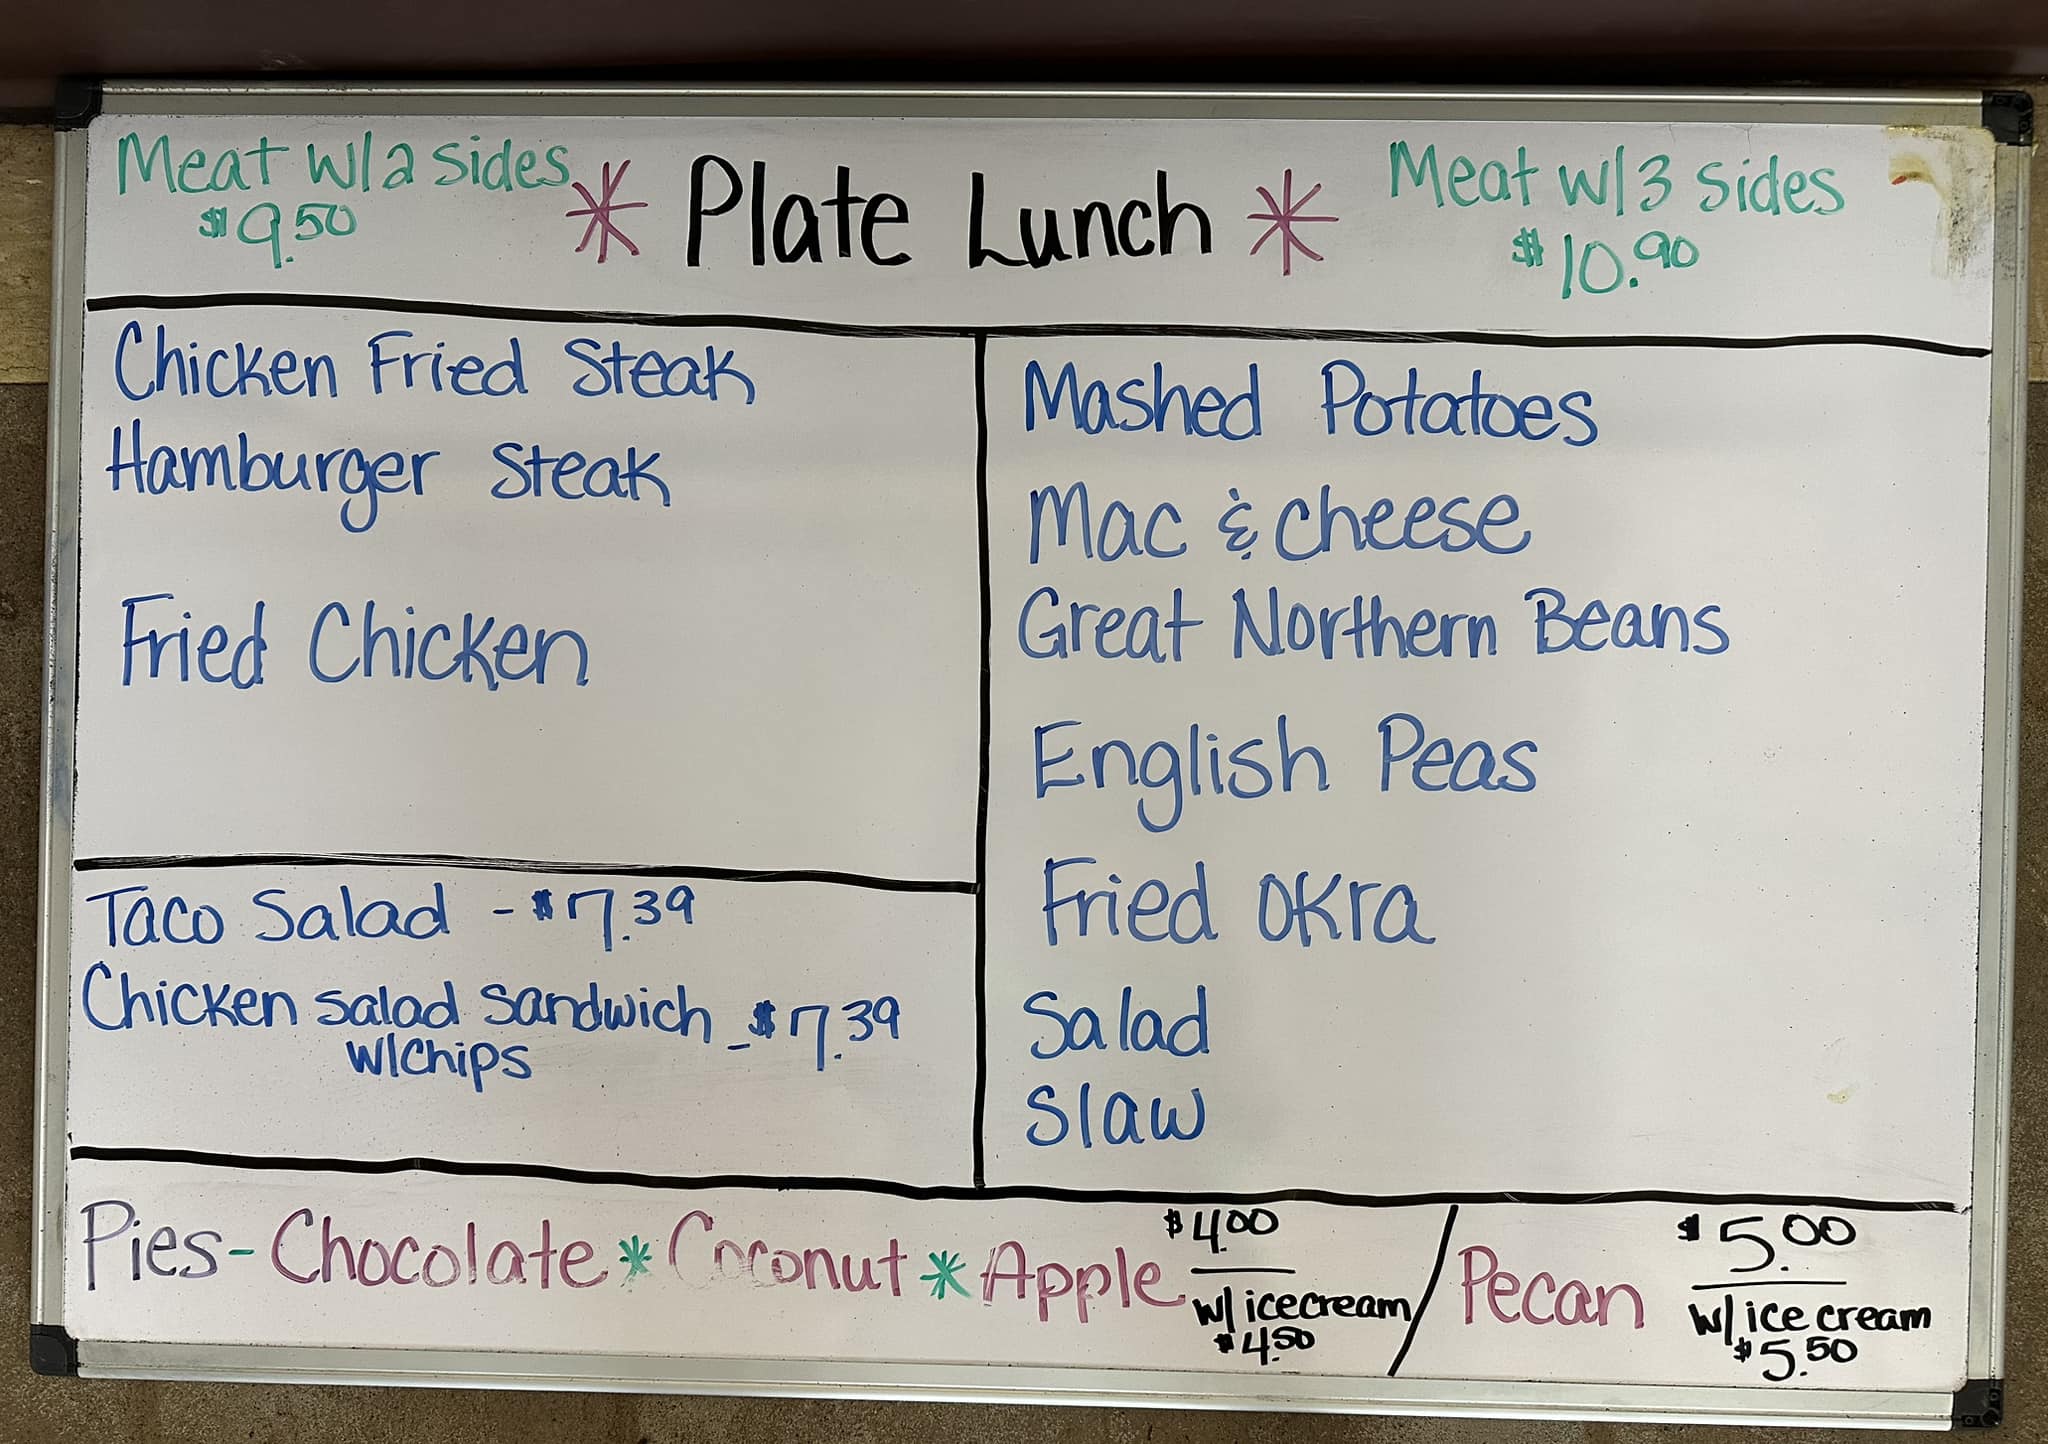 Meat w/2 sides
$9.50
* Plate Lunch *
Meat w/3 sides
$10.90
Chicken Fried Steak
Hamburger Steak
Fried Chicken
Taco Salad - $7.39
Chicken salad sandwich - $7.39
w/chips
Mashed Potatoes
Mac & cheese
Great Northern Beans
English Peas
Fried OKra
Salad
Slaw
Pies - Chocolate * Coconut * Apple $4.00
w/ icecream
$4.50
/ Pecan $5.00
w/ ice cream
$5.50